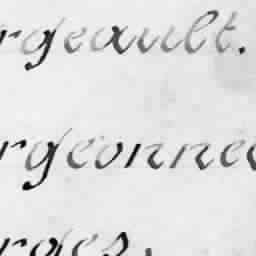 rgeault.
rgeonne
rges,